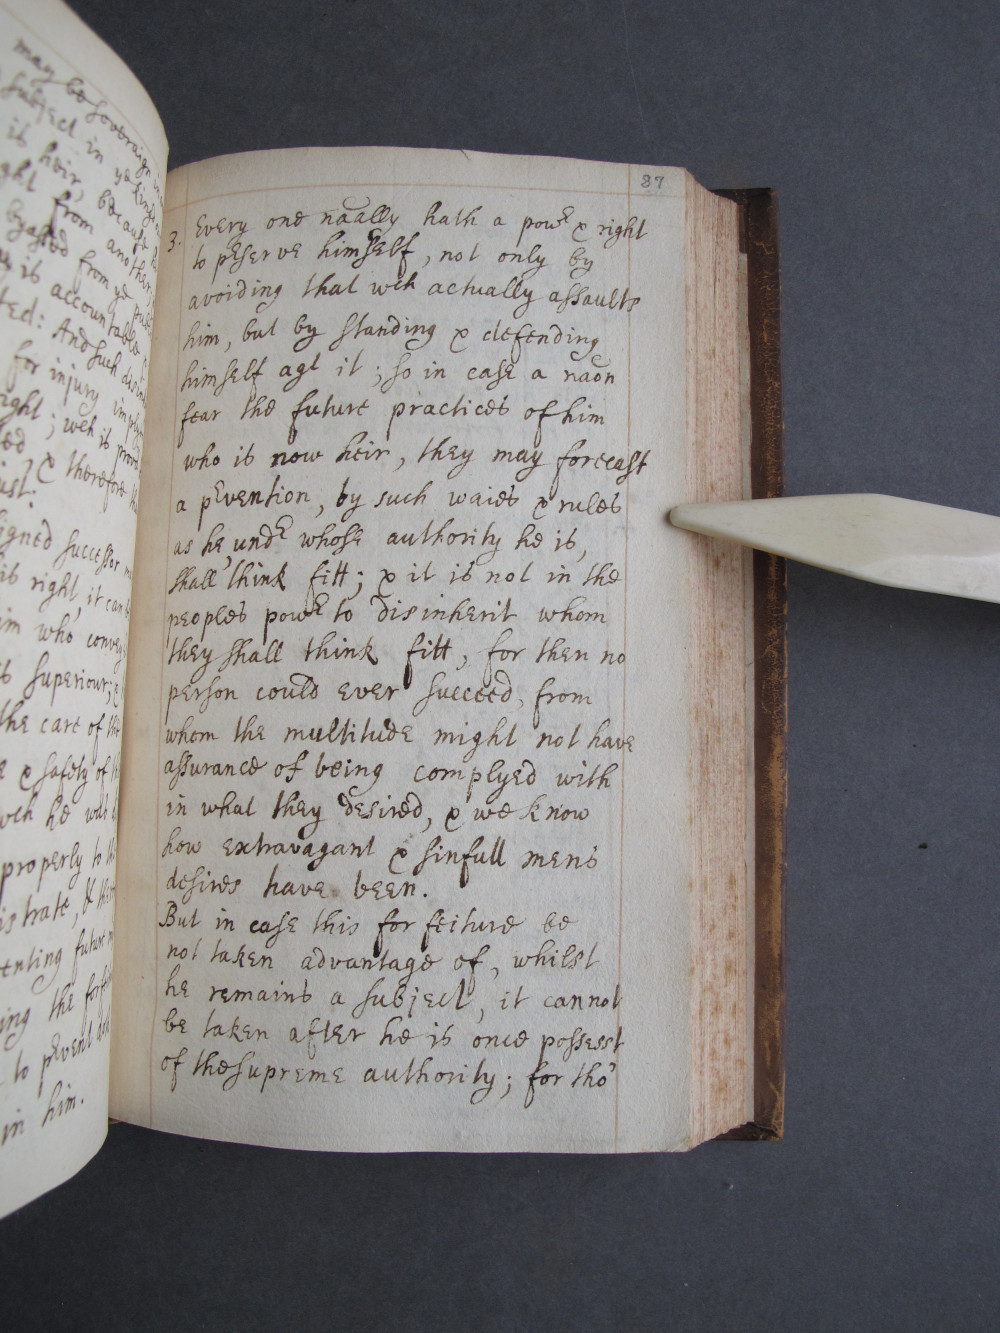 may be sovereign
subject in ye
it heir, because
ght from another,
from ye
is accountable
ted: And such
for injury
ight; wch is
& therefore
ust.
igned successor
is right, it can
im who
's superiour;
the care of
& safety of
wch he
properly to
istrate, &
enting future
ing the
to pevent
in him.
87
3. Every one naally hath a powr & right
to pserve himself, not only by
avoiding that wch actually assaults
him, but by standing & defending
himself agt it; so in case a naon
fear the future practices of him
who is now heir, they may forecast
a pvention, by such waies & rules
as he, undr whose authority he is,
shall think fitt; & it is not in the
peoples powr to disinherit whom
they shall think fitt, for then no
person could ever succeed, from
whom the multitude might not have
assurance of being complyed with
in what they desired, & we know
how extravagant & sinfull mens
desires have been.
But in case this forfeiture be
not taken advantage of, whilst
he remains a subject, it cannot
be taken after he is once possesst
of the supreme authority; for tho'